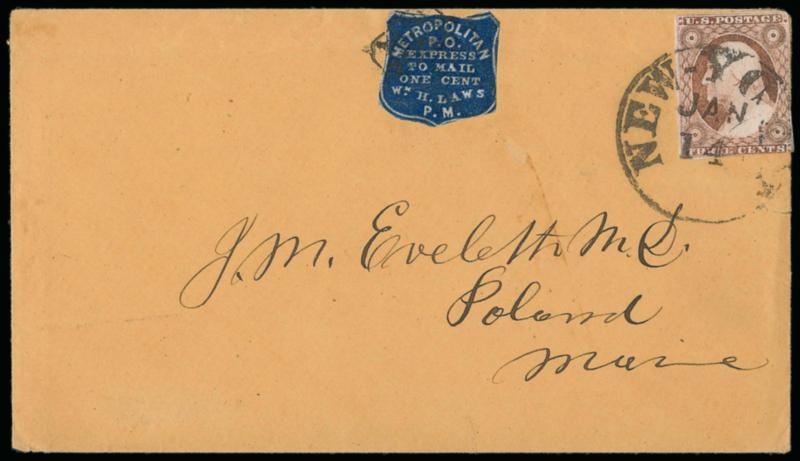 METROPOLITAN
P.O.
EXPRESS
TO MAIL
ONE CENT
Wm H. LAWS
P.M.
U.S. POSTAGE
THREE CENTS
NEW YO
JAN
14
J. M. Eveleth M.D.
Poland
Maine